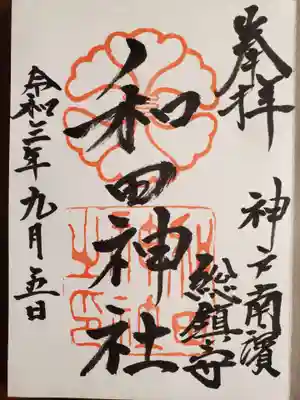 奉拝
神戸南濱
総鎮守
和田神社
令和三年九月五日